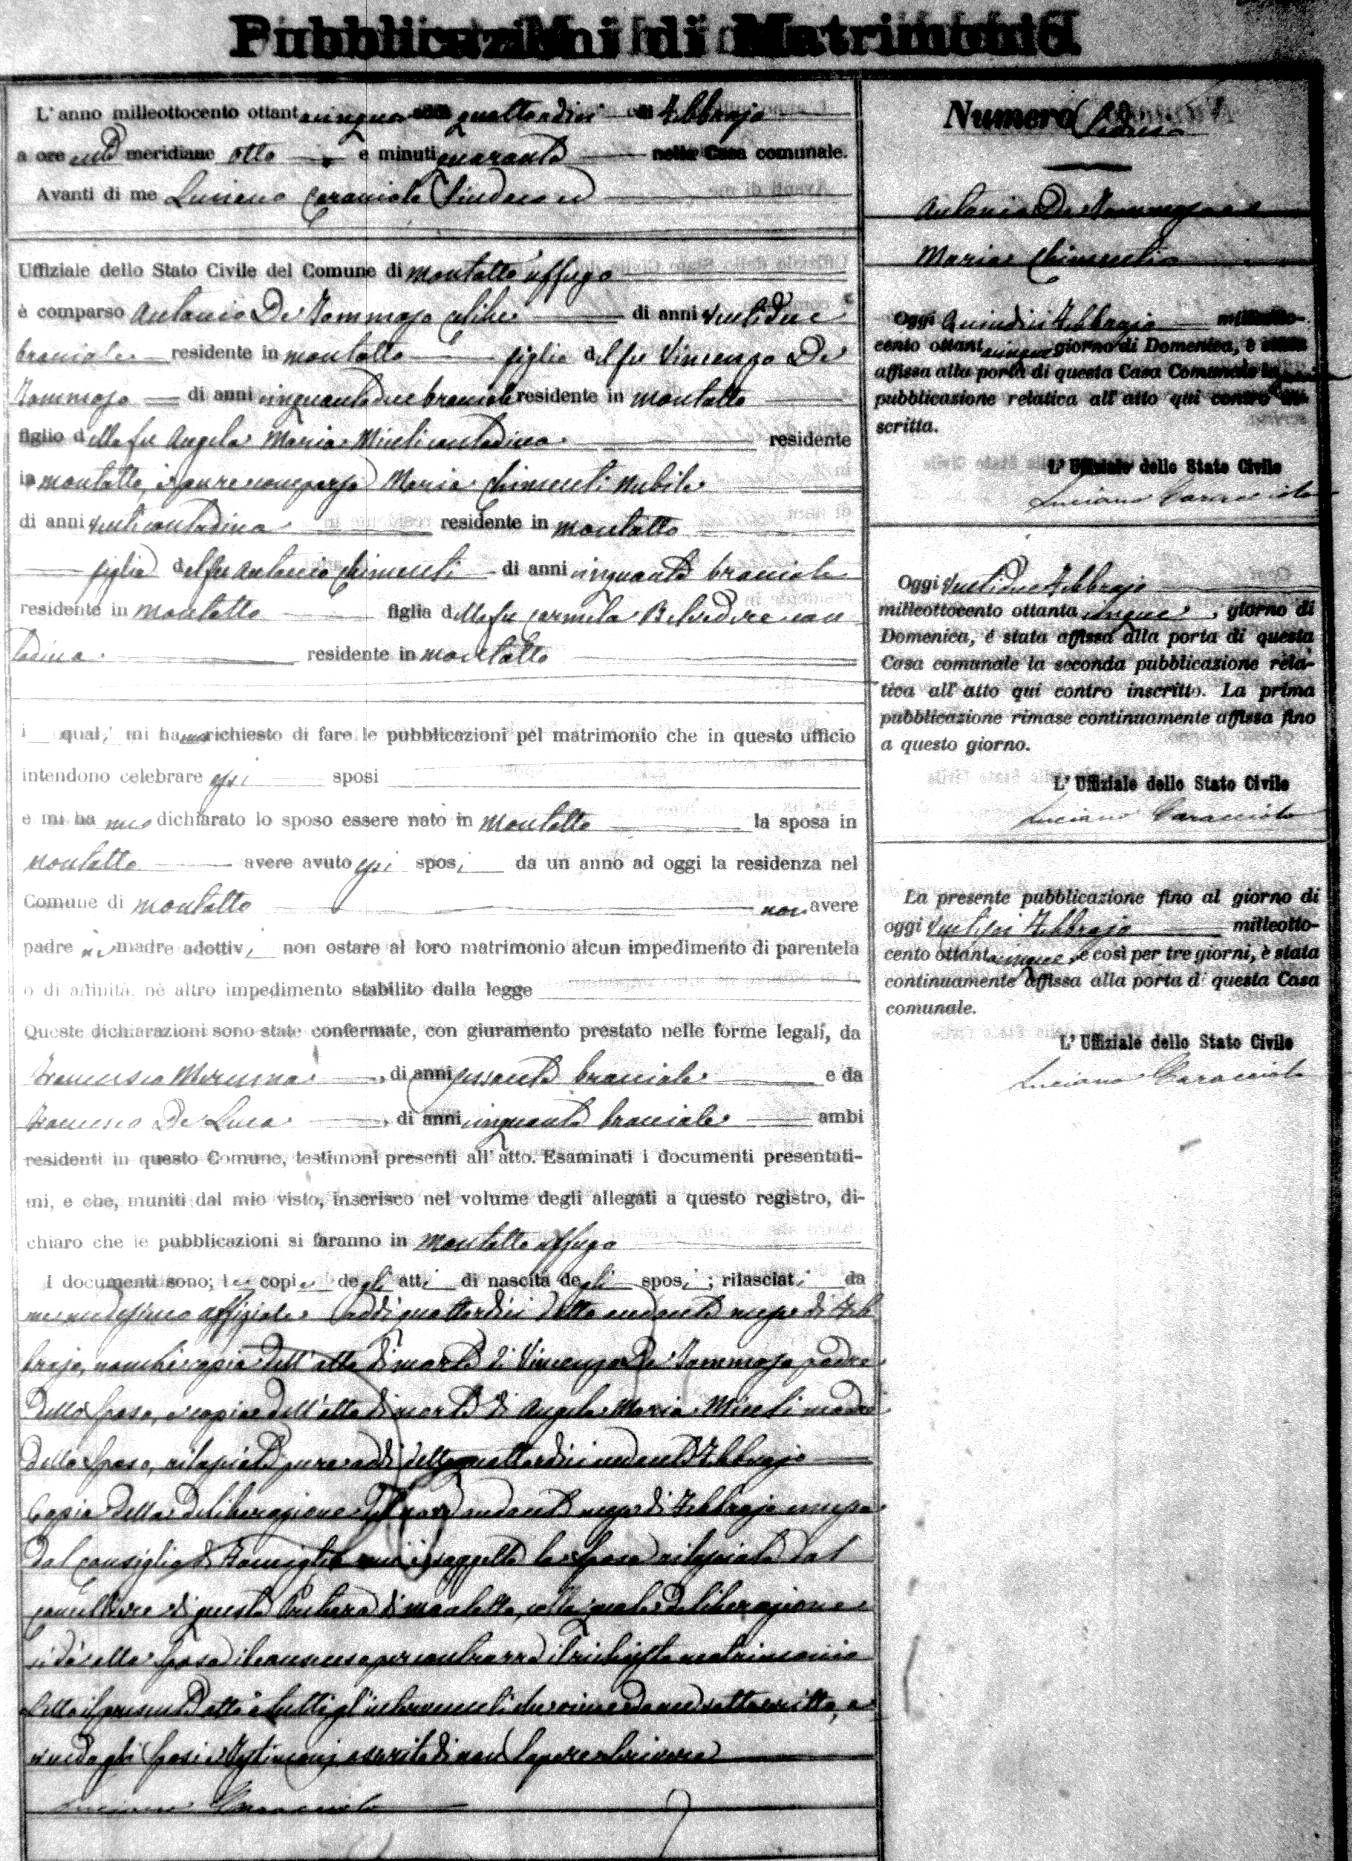 Pubblicazioni di Matrimonio.
L'anno milleottocento ottantacinque addì quattordici di Febbrajo
a ore anti meridiane otto e minuti quaranta nella Casa comunale.
Avanti di me Luciano Caracciolo Sindaco ed
Uffiziale dello Stato Civile del Comune di Montalto Uffugo
è comparso Antonio De Tommaso celibe di anni ventidue
bracciale residente in Montalto figlio del fu Vincenzo De
Tommaso di anni cinquantadue bracciale residente in Montalto
figlio della fu Angela Maria Miceli contadina residente
in Montalto, è pure comparsa Maria Chimenti nubile
di anni venti contadina residente in Montalto
figlia del fu Antonio Chimenti di anni cinquanta bracciale
residente in Montalto figlia della fu Carmela Belvedere con
tadina residente in Montalto
i quali mi hanno richiesto di fare le pubblicazioni pel matrimonio che in questo ufficio
intendono celebrare essi sposi
e mi hanno dichiarato lo sposo essere nato in Montalto la sposa in
Montalto avere avuto essi sposi da un anno ad oggi la residenza nel
Comune di Montalto non avere
padre nè madre adottivi non ostare al loro matrimonio alcun impedimento di parentela
o di affinità, nè altro impedimento stabilito dalla legge
Queste dichiarazioni sono state confermate, con giuramento prestato nelle forme legali, da
Francesco di anni sessanta bracciale e da
Francesco De Luca, di anni cinquanta bracciale ambi
residenti in questo Comune, testimoni presenti all'atto. Esaminati i documenti presentati-
mi, e che, muniti dal mio visto, inserisco nel volume degli allegati a questo registro, di-
chiaro che le pubblicazioni si faranno in Montalto Uffugo
I documenti sono; le copie degli atti di nascita degli sposi; rilasciati da
me medesimo uffiziale addì quattordici detto andante mese di Feb
brajo, nonchè copia dell'atto di morte di Vincenzo De Tommaso padre
dello sposo, e copia dell'atto di morte di Angela Maria Miceli madre
dello sposo, rilasciate pure addì detto quattordici andante Febbrajo
Copia della deliberazione del nove andante mese di Febbrajo emessa
dal consiglio di Famiglia cui è soggetta la sposa rilasciata dal
Cancelliere di questa Pretura di Montalto, colla quale deliberazione
si dà alla sposa il consenso per contrarre il richiesto matrimonio
Letto il presente atto a tutti gl'intervenuti che viene da me sottoscritto, e
non dagli sposi e testimoni asserito di non sapere scrivere
Luciano Caracciolo
Numero
Antonio De Tommaso e
Maria Chimenti
Oggi quindici Febbrajo milleotto-
cento ottantacinque giorno di Domenica, è stata
affissa alla porta di questa Casa Comunale la prima
pubblicazione relativa all'atto qui contro in-
scritta.
L'Uffiziale dello Stato Civile
Luciano Caracciolo
Oggi ventidue Febbrajo
milleottocento ottantacinque, giorno di
Domenica, è stata affissa alla porta di questa
Casa comunale la seconda pubblicazione rela-
tiva all'atto qui contro inscritto. La prima
pubblicazione rimase continuamente affissa fino
a questo giorno.
L'Uffiziale dello Stato Civile
Luciano Caracciolo
La presente pubblicazione fino al giorno di
oggi ventisei Febbrajo milleotto-
cento ottantacinque e così per tre giorni, è stata
continuamente affissa alla porta di questa Casa
comunale.
L'Uffiziale dello Stato Civile
Luciano Caracciolo